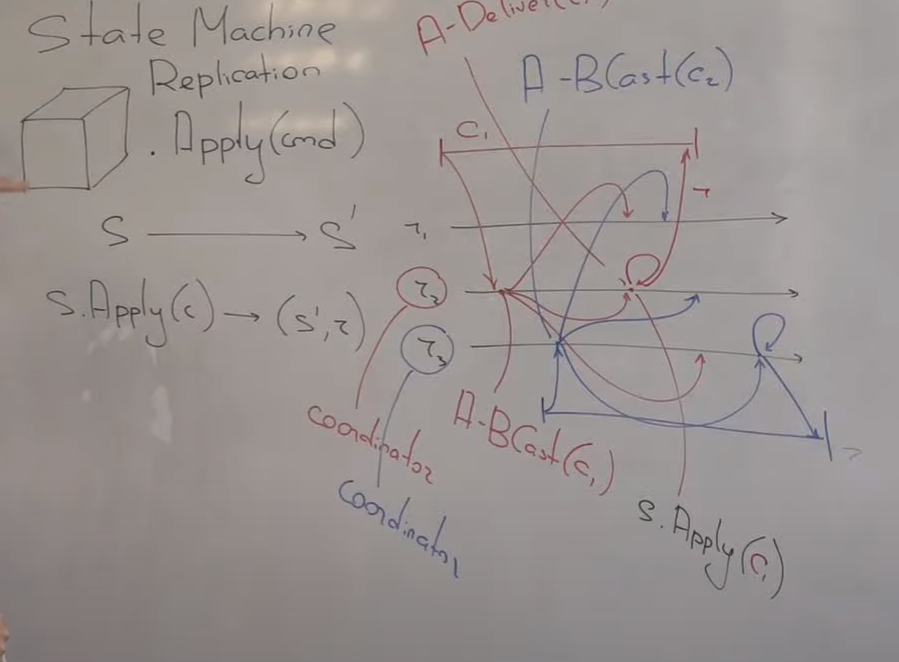 State Machine
Replication
. Apply(cmd)
S → S'
S.Apply(c) → (S', r)
A-Deliver(c₁)
A-BCast(c₂)
C₁
r
r₁
r₂
r₃
coordinator
coordinator
A-BCast(c₁)
S.Apply(c₁)